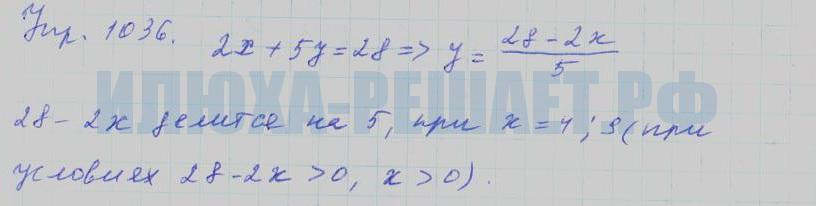 Упр. 1036.
2x + 5y = 28 => y = \frac{28 - 2x}{5}
ИЛЮХА-РЕШАЕТ.РФ
28 - 2x делится на 5, при x = 4; 9 (при
условиях 28 - 2x > 0, x > 0).